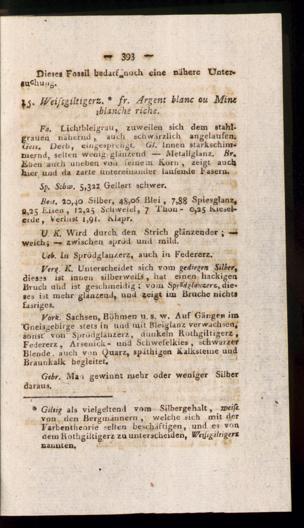 — 393 —
Dieses Fossil bedarf noch eine nähere Unter-
suchung.
25. Weißgiltigerz. * fr. Argent blanc ou Mine
blanche riche.
Fa. Lichtbleigrau, zuweilen sich dem stahl-
grauen nähernd, auch schwärzlich angelaufen.
Gest. Derb, eingesprengt. Gl. Innen starkschim-
mernd, selten wenig glänzend — Metallglanz. Br.
Eben auch uneben von feinem Korn, zeigt auch
hier und da zarte untereinander laufende Fasern.
Sp. Schw. 5,322 Gellert schwer.
Best. 20,40 Silber, 48,06 Blei, 7,88 Spiesglanz,
2,25 Eisen, 12,25 Schwefel, 7 Thon - 0,25 Kiesel-
erde, Verlust 1,91. Klapr.
U. K. Wird durch den Strich glänzender; —
weich; — zwischen spröd und mild.
Ueb. In Sprödglanzerz, auch in Federerz.
Verg. K. Unterscheidet sich vom gediegen Silber,
dieses ist innen silberweiß, hat einen hackigen
Bruch und ist geschmeidig: vom Sprödglanzerz, die-
ses ist mehr glänzend, und zeigt im Bruche nichts
fasriges.
Vork. Sachsen, Böhmen u. s. w. Auf Gängen im
Gneisgebirge stets in und mit Bleiglanz verwachsen,
sonst von Sprödglanzerz, dunkeln Rothgiltigerz,
Federerz, Arsenick- und Schwefelkies, schwarzer
Blende, auch von Quarz, späthigen Kalksteine und
Braunkalk begleitet.
Gebr. Man gewinnt mehr oder weniger Silber
daraus.
* Giltig als vielgeltend vom Silbergehalt, weiß
von den Bergmännern, welche sich mit der
Farbentheorie selten beschäftigen, und es von
dem Rothgiltigerz zu unterscheiden, Weißgiltigerz
nannten.